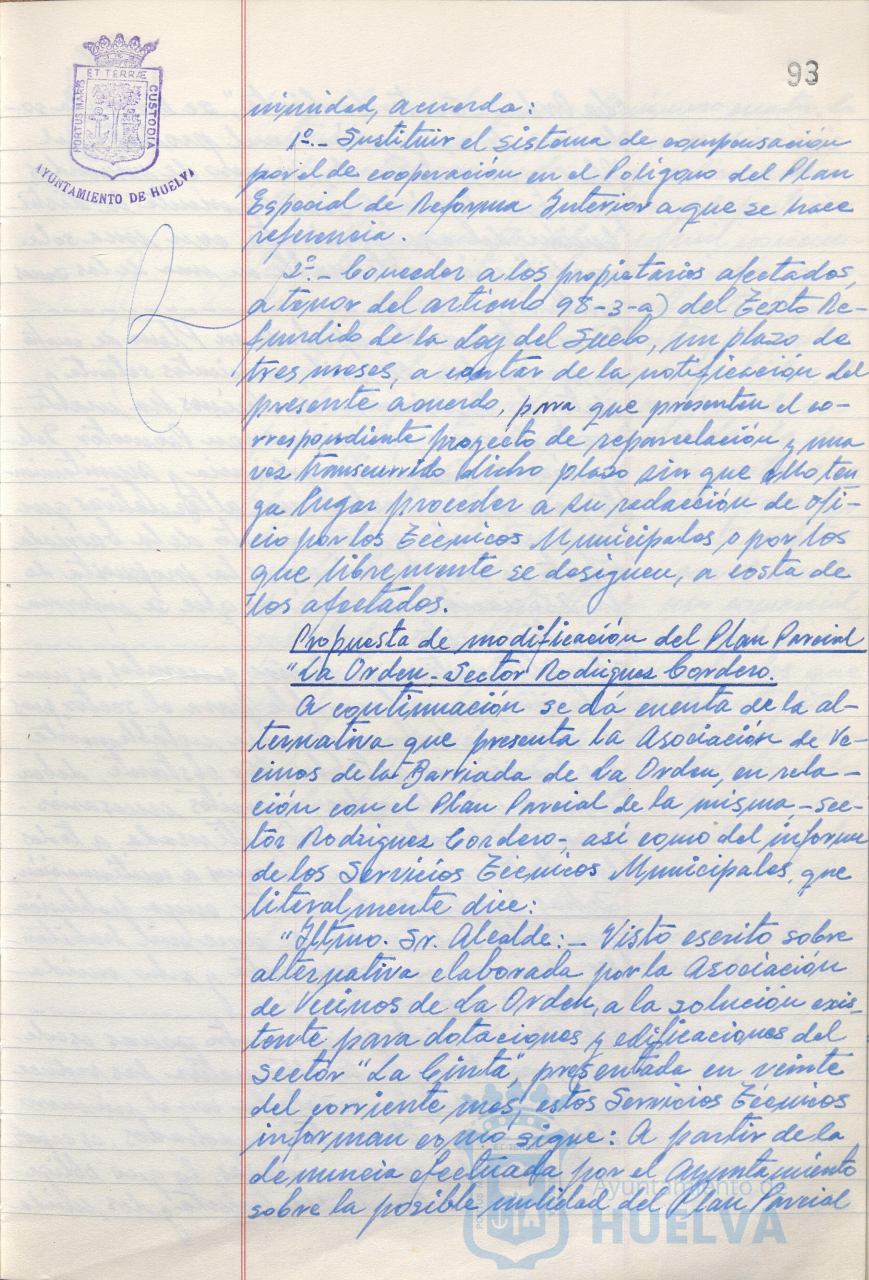 93
ET TERRÆ
PORTUS MARIS
CUSTODIA
AYUNTAMIENTO DE HUELVA
nimidad, acuerda:
1º.- Sustituir el sistema de compensación
por el de cooperación en el Polígono del Plan
Especial de Reforma Interior a que se hace
referencia.
2º.- Conceder a los propietarios afectados,
a tenor del artículo 98-3-a) del Texto Re-
fundido de la Ley del Suelo, un plazo de
tres meses, a contar de la notificación del
presente acuerdo, para que presenten el co-
rrespondiente proyecto de reparcelación y una
vez transcurrido dicho plazo sin que ello ten
ga lugar proceder a su redacción de ofi-
cio por los Técnicos Municipales o por los
que libremente se designen, a costa de
los afectados.
Propuesta de modificación del Plan Parcial
"La Orden-Sector Rodríguez Cordero.
A continuación se dá cuenta de la al-
ternativa que presenta la Asociación de Ve-
cinos de la Barriada de La Orden, en rela-
ción con el Plan Parcial de la misma -Sec-
tor Rodríguez Cordero-, así como del informe
de los Servicios Técnicos Municipales, que
literalmente dice:
"Iltmo. Sr. Alcalde:- Visto escrito sobre
alternativa elaborada por la Asociación
de Vecinos de La Orden, a la solución exis-
tente para dotaciones y edificaciones del
Sector "La Cinta", presentada en veinte
del corriente mes, estos Servicios Técnicos
informan como sigue: A partir de la
denuncia efectuada por el Ayuntamiento
sobre la posible nulidad del Plan Parcial
Ayuntamiento de
HUELVA